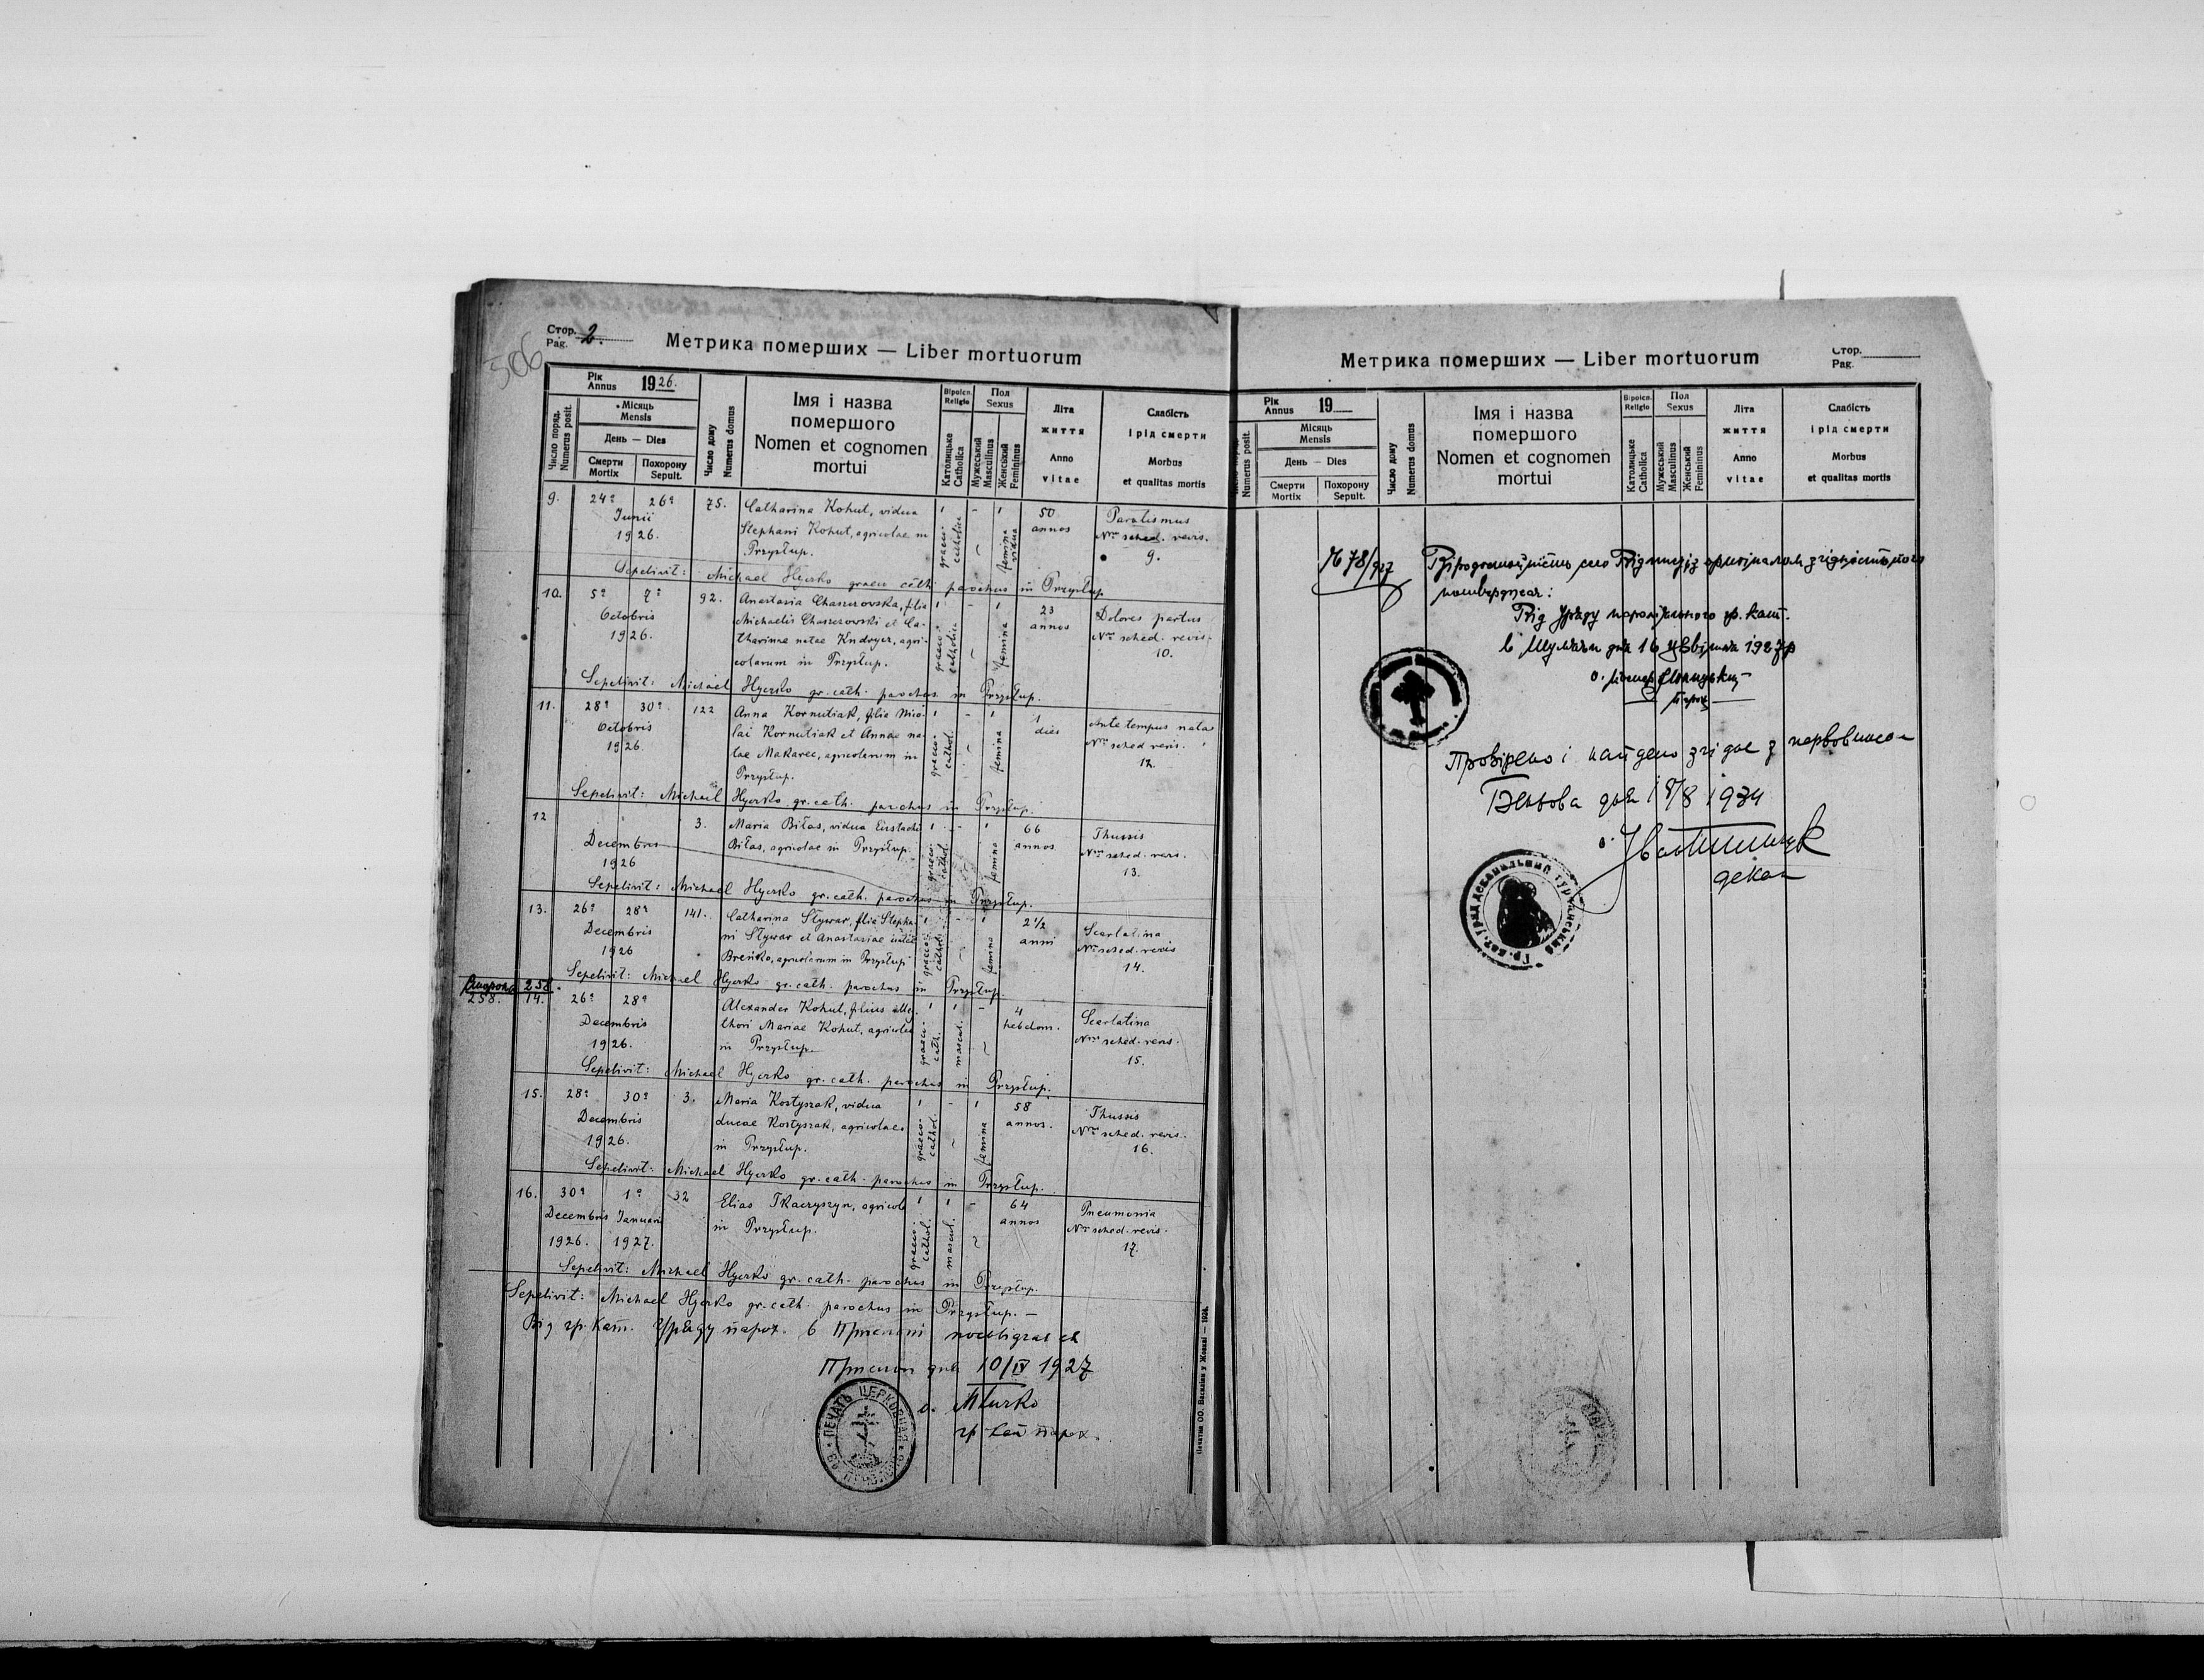 306
Стор.
Pag. 2.
Метрика померших — Liber mortuorum
Рік
Annus 1926.
Місяць
Mensis
День — Dies
Смерти
Mortix
Похорону
Sepult.
Число поряд.
Numerus posit.
Число дому
Numerus domus
Імя і назва
помершого
Nomen et cognomen
mortui
Віроісп.
Religio
Католицьке
Catholica
Пол
Sexus
Мужеський
Masculinus
Женський
Femininus
Літа
життя
Anno
vitae
Слабість
і рід смерти
Morbus
et qualitas mortis
9. 24a 26a 75. Catharina Kohut, vidua 50 Paralismus
Junii Stephani Kohut, agricolae in annos Nrus sched. revis.
1926. Przysłup. graeco-catholica femina vidua 9.
Sepelivit: Michael Hyerko graeco cath. parochus in Przysłup
10. 5a 7a 92. Anastasia Chaszczovska, filia 23 Dolores partus
Octobris Michaelis Chaszczovski et Ca- annos Nrus sched. revis.
1926. tharinae natae Kudrycz, agri- graeco-catholica femina 10.
colarum in Przysłup.
Sepelivit: Michael Hyerko gr. cath. parochus in Przysłup.
11. 28a 30a 122 Anna Kornutiak, filia Nico- 1 Ante tempus nata
Octobris lai Kornutiak et Annae na- dies Nrus sched revis.
1926. tae Makarec, agricolarum in graeco-cathol. femina 12.
Przysłup.
Sepelivit: Michael Hyerko gr. cath. parochus in Przysłup.
12 3. Maria Biłas, vidua Eustachii 66 Thussis
Decembris Biłas, agricolae in Przysłup. annos Nrus sched. revis.
1926 graeco-cathol. femina 13.
Sepelivit: Michael Hyerko gr. cath. parochus in Przysłup.
13. 26a 28a 141. Catharina Stywar, filia Stepha- 2 1/2 Scarlatina
Decembris ni Stywar et Anastasiae natae anni Nrus sched. revis
1926 Breńko, agricolarum in Przysłup graeco-cathol. femina 14.
Sepelivit: Michael Hyerko gr. cath. parochus in Przysłup.
258.
258. 14. 26a 28a Alexander Kohut, filius ille- 4 Scarlatina
Decembris thori Mariae Kohut, agricolae hebdom. Nrus sched. revis.
1926. in Przysłup. graeco-cath. mascul. 15.
Sepelivit: Michael Hyerko gr. cath. parochus in Przysłup.
15. 28a 30a 3. Maria Kostyszak, vidua 58 Thussis
Decembris Lucae Kostyszak, agricolae annos. Nrus sched. revis.
1926. in Przysłup. graeco-cathol. femina 16.
Sepelivit: Michael Hyerko gr. cath. parochus in Przysłup.
16. 30a 1a 32 Elias Tkaczyszyn, agricola 64 Pneumonia
Decembris Januarii in Przysłup. annos Nrus sched. revis.
1926. 1927. graeco-cathol. mascul. 17.
Sepelivit: Michael Hyerko gr. cath. parochus in Przysłup.
Sepelivit: Michael Hyerko gr. cath. parochus in Przysłup. —
Від гр. кат. Уряду парох. в Прислопі
Прислоп дня 10/IV 1927
о.
гр кат парох.
ПЕЧАТЬ ЦЕРКОВНАЯ
Печатня ОО. Василіян у Жовкві — 1924.
Метрика померших — Liber mortuorum
Стор.
Pag.
Рік
Annus 19
Місяць
Mensis
День — Dies
Смерти
Mortix
Похорону
Sepult.
Numerus posit.
Число дому
Numerus domus
Імя і назва
помершого
Nomen et cognomen
mortui
Віроісп.
Religio
Католицьке
Catholica
Пол
Sexus
Мужеський
Masculinus
Женський
Femininus
Літа
життя
Anno
vitae
Слабість
і рід смерти
Morbus
et qualitas mortis
№ 78/927 Віродостойність сего Відпису із оригіналом
Від Уряду парохіяльного гр. кат.
в дня 16 цвітня 1927 р
Парох
Провірено і найдено згідне з первописом
дня 18/8 1934
декан